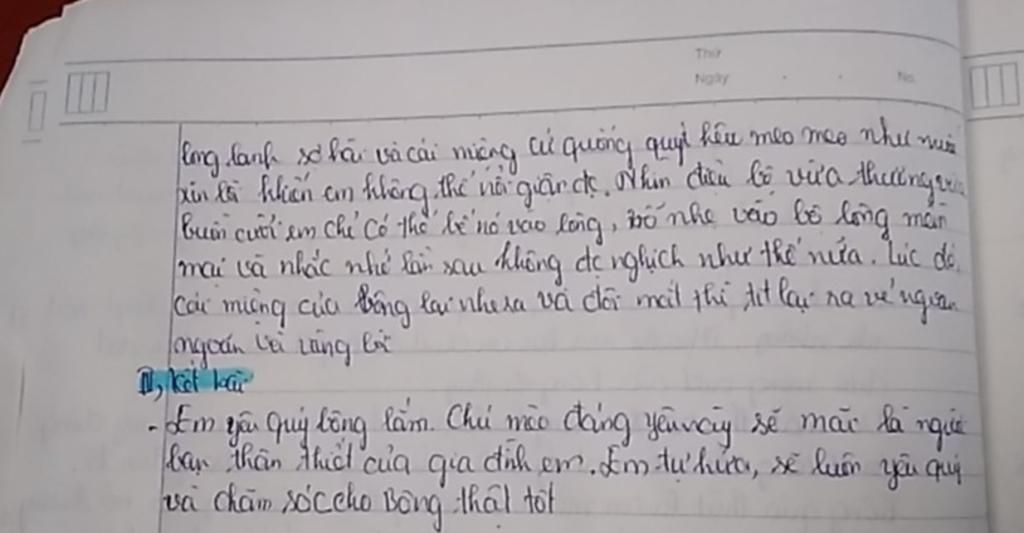 Thứ
Ngày No.
long lanh sợ hãi và cái miệng cứ quống quýt kêu meo meo như muốn
xin lỗi khiến em không thể nổi giận đc. Nhìn điệu bộ vừa thương vừa
buồn cười em chỉ có thể bế nó vào lòng, vỗ nhẹ vào bộ lông mềm
mại và nhắc nhở lần sau không đc nghịch như thế nữa. Lúc đó,
cái miệng của Bông lại nhe ra và đôi mắt thì tít lại ra vẻ ngoan
ngoãn và vâng lời
III, Kết bài
- Em yêu quý Bông lắm. Chú mèo đáng yêu này sẽ mãi là người
bạn thân thiết của gia đình em. Em tự hứa, sẽ luôn yêu quý
và chăm sóc cho Bông thật tốt